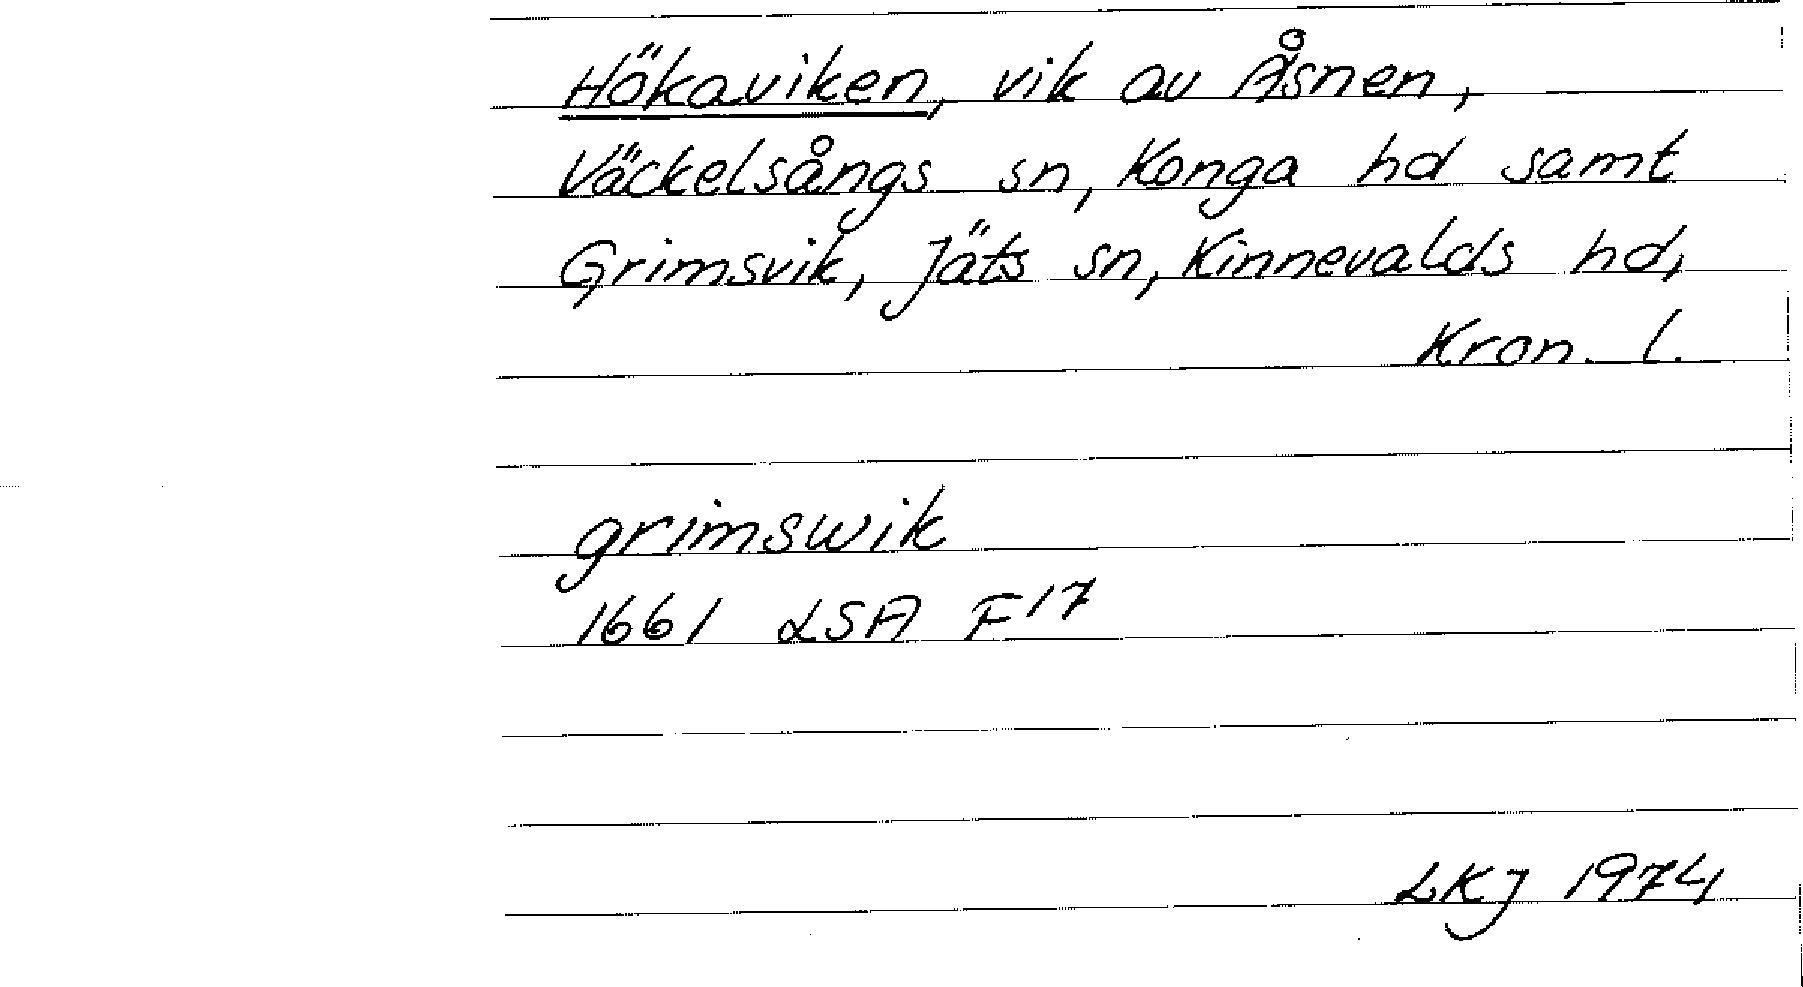 Hökaviken, vik av Åsnen,
Väckelsångs sn, Konga hd samt
Grimsvik, Jäts sn, Kinnevalds hd,
Kron. l.
grimswik
1661 LSA F17
LKJ 1974